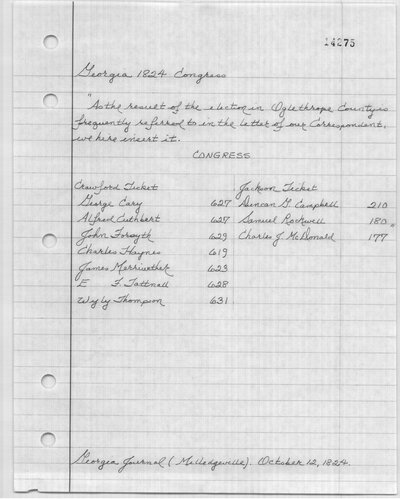 14275
Georgia 1824 Congress
"As the result of the election in Oglethrope County is
frequently referred to in the letter of our Correspondent,
we here insert it.
CONGRESS
Crawford Ticket Jackson Ticket
George Cary 627 Duncan G. Campbell 210
Alfred Cuthbert 627 Samuel Rockwell 180
John Forsyth 629 Charles J McDonald 177"
Charles Haynes 619
James Merriwether 623
E F Tattnall 628
Wyly Thompson 631
Georgia Journal (Milledgeville). October 12, 1824.